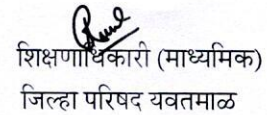 शिक्षणाधिकारी (माध्यमिक)
जिल्हा परिषद यवतमाळ